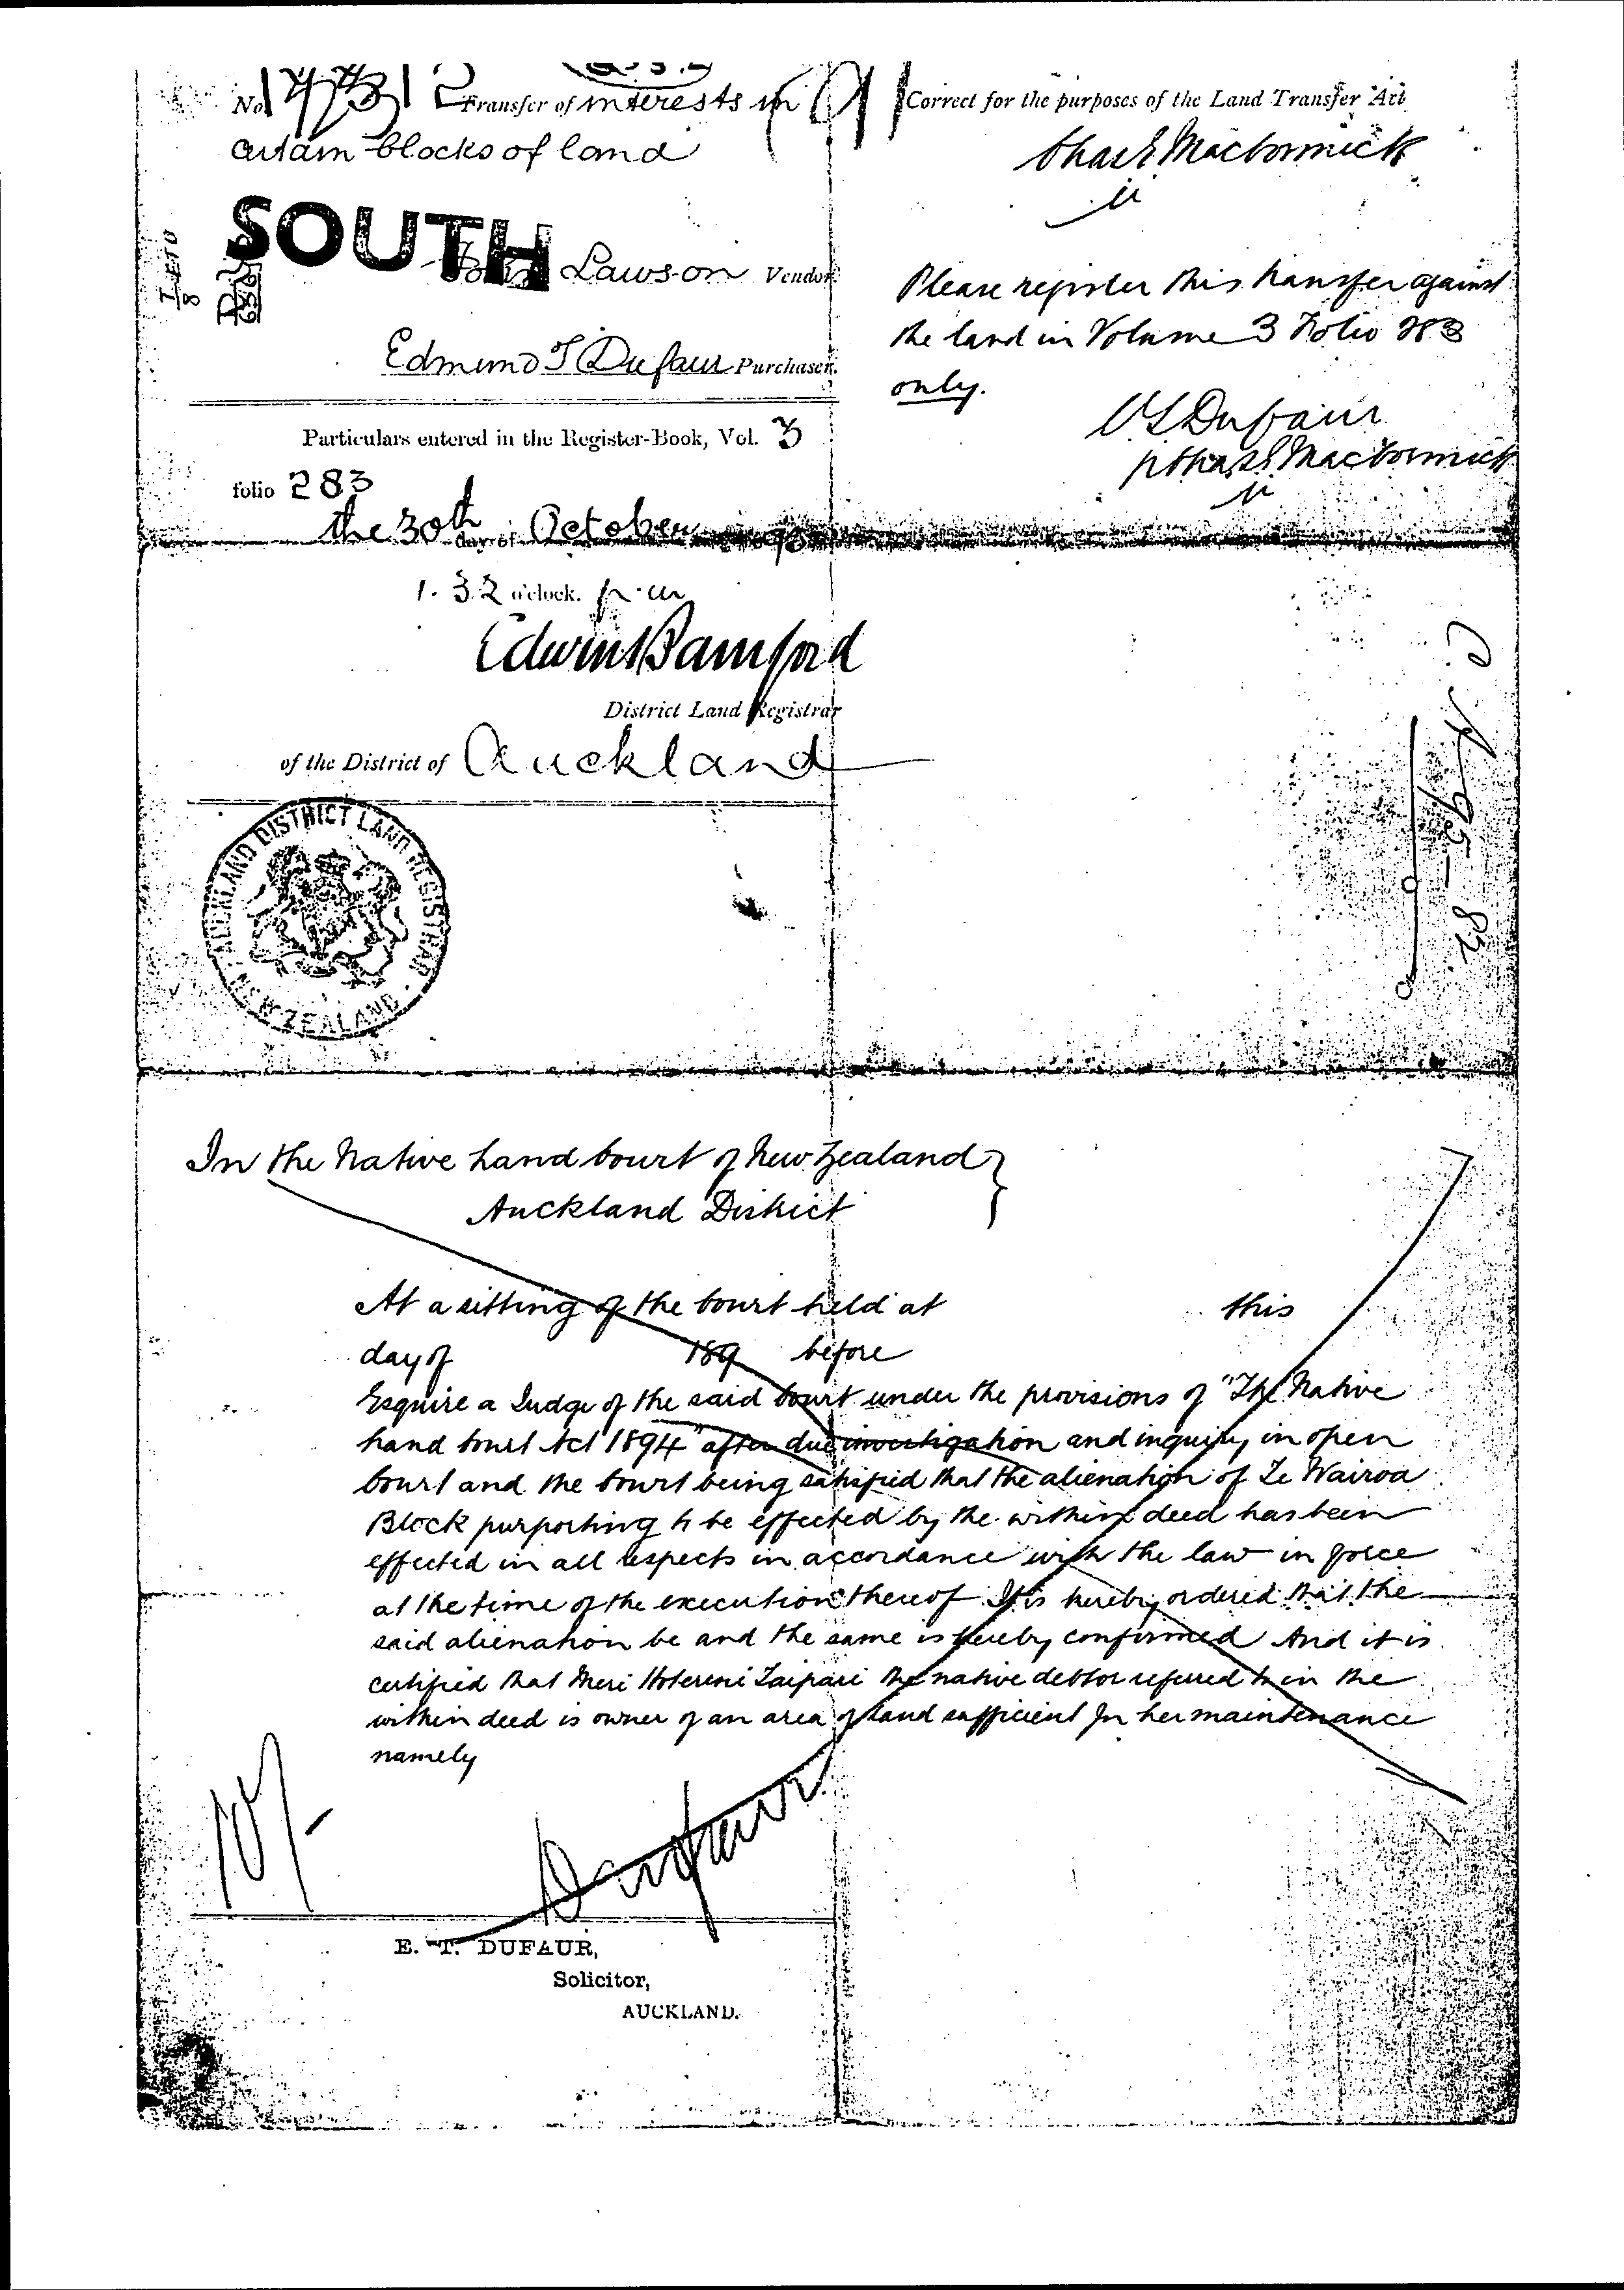 No Transfer of interests in
certain blocks of land
SOUTH
John Lawson Vendor.
Edmund T Dufaur Purchaser.
Particulars entered in the Register-Book, Vol. 3
folio 283
the 30th day of October
1.32 o'clock. p.m
Edwin Bamford
District Land Registrar
of the District of Auckland
AUCKLAND DISTRICT LAND REGISTRAR
NEW ZEALAND
Correct for the purposes of the Land Transfer Act
Chas E MacCormick
Please register this transfer against
the land in Volume 3 Folio 283
only.
Dufaur
p Chas E MacCormick
In the Native Land Court of New Zealand
Auckland District
At a sitting of the Court held at this
day of 189 before
Esquire a Judge of the said Court under the provisions of "The Native
Land Court Act 1894" after due investigation and inquiry in open
Court and the Court being satisfied that the alienation of Te Wairoa
Block purporting to be effected by the within deed has been
effected in all respects in accordance with the law in force
at the time of the execution thereof It is hereby ordered that the
said alienation be and the same is hereby confirmed And it is
certified that Meri Hotereni Taipari the native debtor referred to in the
within deed is owner of an area of land sufficient for her maintenance
namely
10/-
Dufaur
E. T. DUFAUR,
Solicitor,
AUCKLAND.